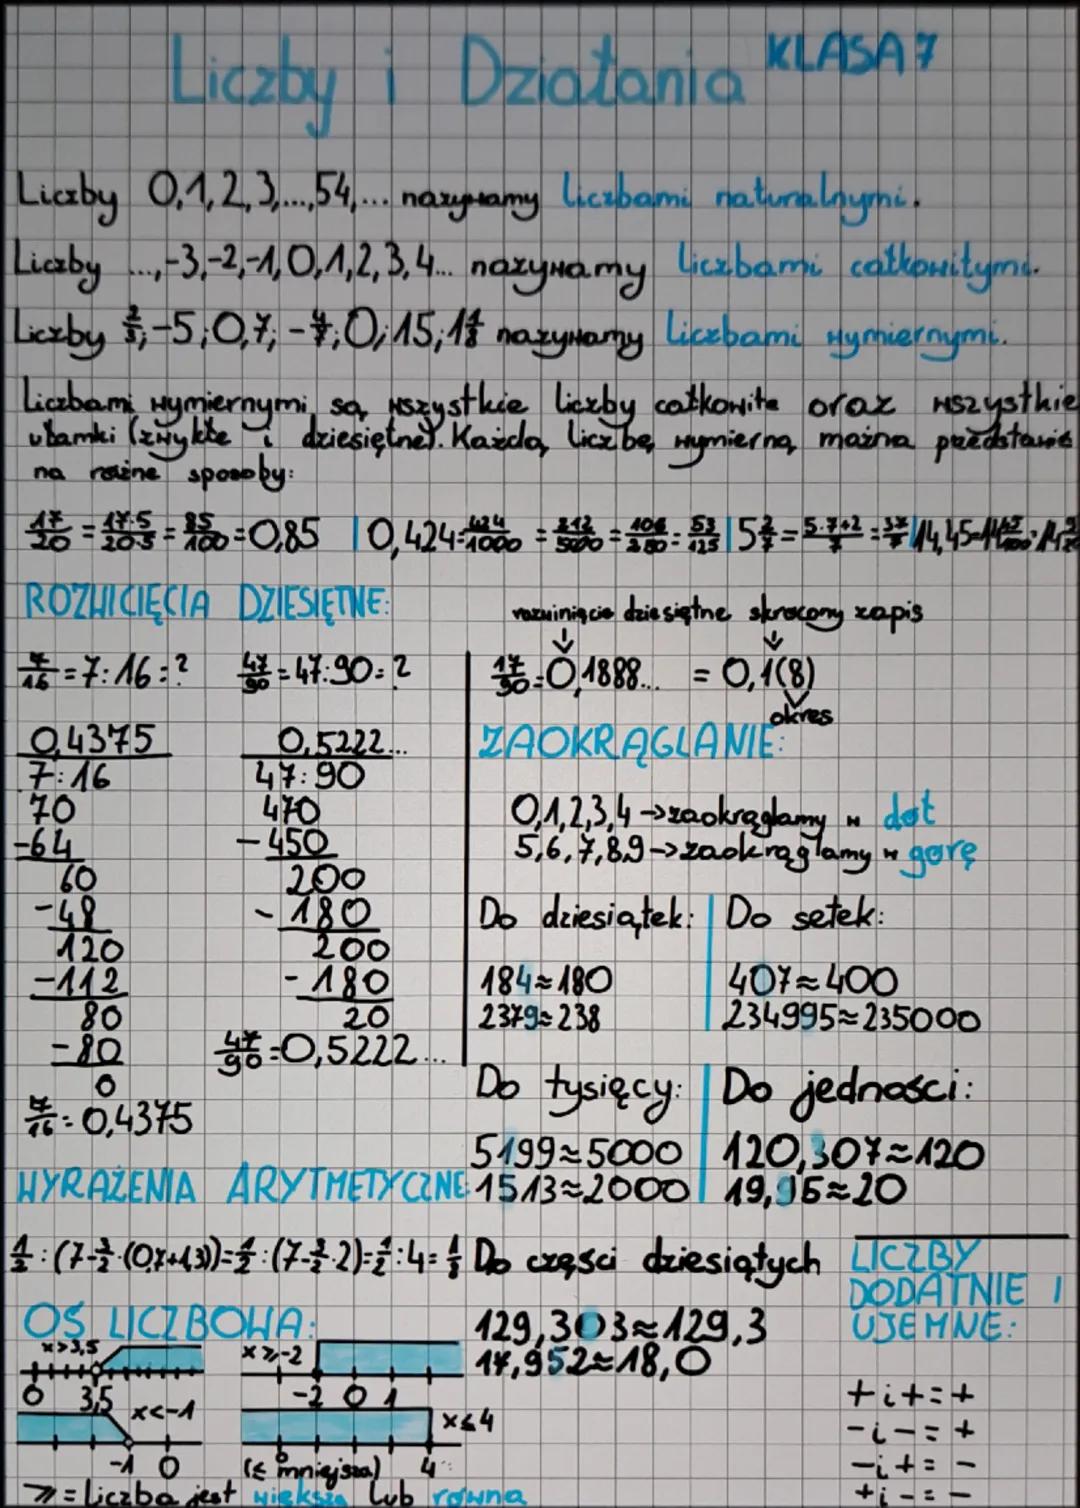 Liczby i Działania KLASA 7
Liczby 0,1,2,3,...,54,... nazywamy liczbami naturalnymi.
Liczby ...,-3,-2,-1,0,1,2,3,4... nazywamy liczbami całkowitymi.
Liczby 2/3; -5; 0,7; -4/7; 0; 15; 1 1/8 nazywamy liczbami wymiernymi.
Liczbami wymiernymi są wszystkie liczby całkowite oraz wszystkie
ułamki (zwykłe i dziesiętne). Każdą liczbę wymierną można przedstawić
na różne sposoby:
17/20 = 17·5/20·5 = 85/100 = 0,85 | 0,424 = 424/1000 = 212/500 = 106/250 = 53/125 | 5 2/7 = 5·7+2/7 = 37/7 | 14,45 = 14 45/100 =
ROZWICIĘCIA DZIESIĘTNE:
7/16 = 7:16 = ? 47/90 = 47:90 = ?
0,4375
7:16
70
-64
60
-48
120
-112
80
-80
0
7/16 = 0,4375
0,5222...
47:90
470
-450
200
-180
200
-180
20
47/90 = 0,5222...
rozwinięcie dziesiętne skrócony zapis
17/90 = 0,1888... = 0,1(8)
okres
ZAOKRĄGLANIE:
0,1,2,3,4 → zaokrąglamy w dół
5,6,7,8,9 → zaokrąglamy w górę
Do dziesiątek: | Do setek:
184≈180 407≈400
2379≈238 234995≈235000
Do tysięcy: | Do jedności:
5199≈5000 120,307≈120
1513≈2000 19,95≈20
WYRAŻENIA ARYTMETYCZNE
1/2 : (7 - 3/2 · (0,7+1,3)) = 1/2 : (7 - 3/2 · 2) = 1/2 : 4 = 1/8
Do części dziesiątych
129,303≈129,3
17,952≈18,0
OŚ LICZBOWA:
x>3,5
0 3,5
x≥-2
-2 0 1
x<-1
-1 0
x≤4
0 4
(≤ mniejsza)
≥ = Liczba jest większa lub równa
LICZBY
DODATNIE I
UJEMNE:
+ i + = +
- i - = +
- i + = -
+ i - = -